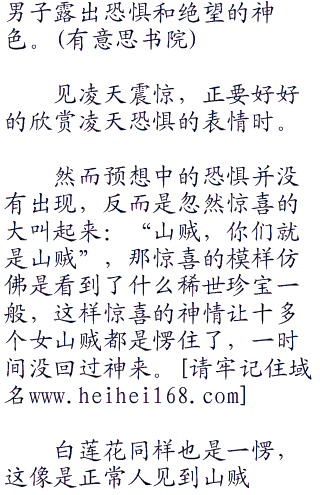 男子露出恐惧和绝望的神
色。(有意思书院)
见凌天震惊，正要好好
的欣赏凌天恐惧的表情时。
然而预想中的恐惧并没
有出现，反而是忽然惊喜的
大叫起来：“山贼，你们就
是山贼”，那惊喜的模样仿
佛是看到了什么稀世珍宝一
般，这样惊喜的神情让十多
个女山贼都是愣住了，一时
间没回过神来。[请牢记住域
名www.heihei168.com]
白莲花同样也是一愣，
这像是正常人见到山贼